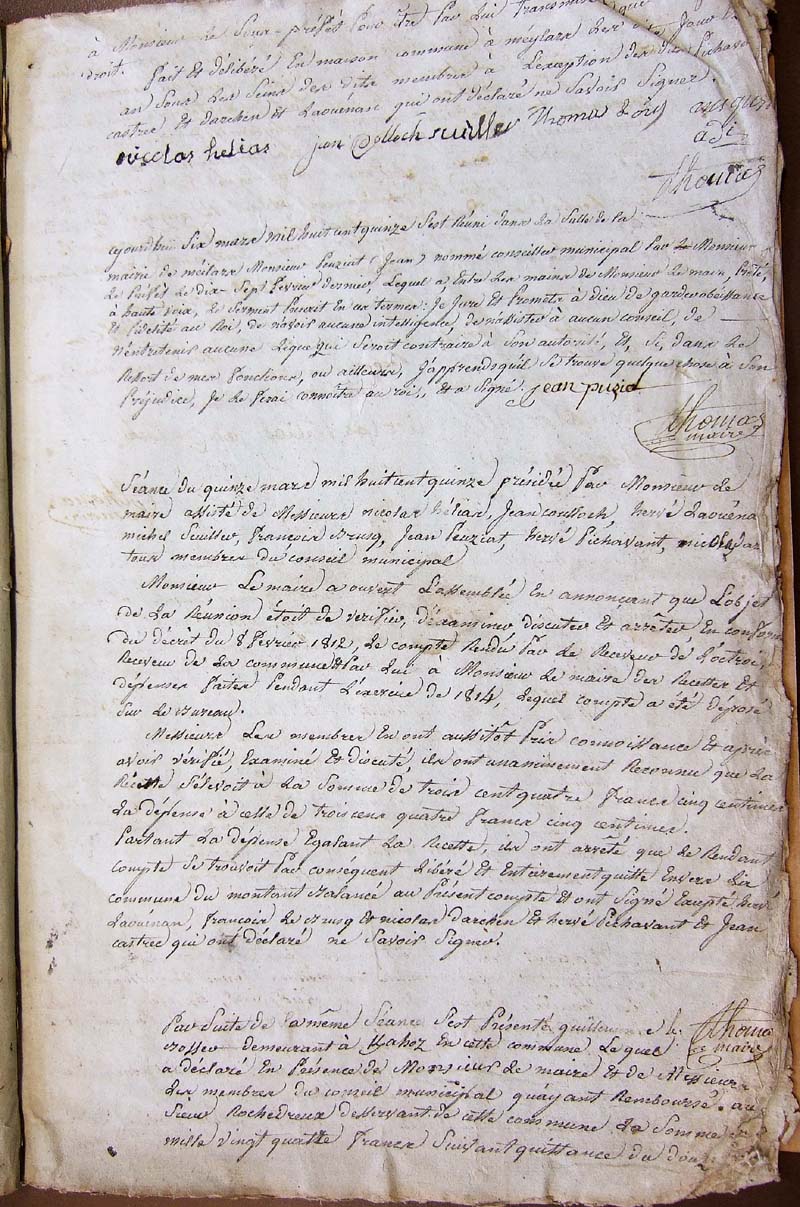 à Monsieur le Sous-préfet pour être par lui transmise que
droit. fait et délibéré En maison commune à meylars les dits jour
an sous les seins des dits membres à L'exception des dits Pichavant
castrec et darchen et Laouenan qui ont déclaré ne savoir signer.
nicolas helias jean Colloch suiller Thomas
Thomas
aujourdhui Six mars mil huit cent quinze s'est Réuni dans La Salle de la
mairie de meilars Monsieur Peuziat (Jean) nommé conseiller municipal Par Monsieur
Le Préfet Le dix-Sept février dernier, Lequel a, Entre Les mains de Monsieur Le maire, Prêté,
à haute voix, Le Serment Prescrit En ces termes: Je Jure et Promets à dieu de garder obéissance
et fidélité au Roi, de n'avoir aucune intelligence, de n'assister à aucun conseil, de
n'entretenir aucune Ligue qui Seroit contraire à Son autorité, et, Si, dans Le
Ressort de mes fonctions, ou ailleurs, J'apprends qu'il Se trouve quelque chose à Son
Préjudice, Je Le ferai connoître au roi, et a Signé. jean puziat
Thomas
maire
Séance du quinze mars mil huit cent quinze présidé Par Monsieur Le
maire assisté de Messieurs nicolas hélias, Jean Coulloch, hervé Laouéna
michel Suiller, françois Brusq, Jean Peuziat, hervé Pichavant, nicolas dar
tous membres du conseil municipal
Monsieur Le maire a ouvert L'assemblée En annonçant que L'objet
de La Réunion étoit de vérifier, d'éxaminer discuter et arrêter En conform
du décret du 8 février 1812, Le compte Rendu Par Le Receveur de L'octroi,
Receveur de La commune Par Lui à Monsieur Le maire des Recettes et
dépenses faites Pendant L'éxercice de 1814, Lequel compte a été déposé
Sur Le Bureau.
Messieurs Les membres En ont aussitôt Pris connoissance et après
avoir vérifié, Examiné et discuté, ils ont unanimement Reconnu que La
Récette S'élevoit à La Somme de trois cent quatre francs cinq centimes
La dépense à celle de trois cens quatre francs cinq centimes.
Partant La dépense Egalant La Recette, ils ont arrêté que Le Rendant
compte Se trouvoit Par conséquent Libéré et Entièrement quitte Envers La
commune du montant Balancé au Présent compte et ont Signé Excepté hervé
Laouénan, françois Le Brusq et nicolas darchen et hervé Pichavant et Jean
castrec qui ont déclaré ne Savoir Signer.
Thomas
maire
Par Suite de la même Séance S'est Présenté guillaume Le
Bosser demeurant à En cette commune Lequel
a déclaré En Présence de Monsieur Le maire et de Messieurs
Les membres du conseil municipal qu'ayant Remboursé au
Sieur Rochedreux desservant de cette commune La Somme de
mille vingt quatre francs Suivant quittance du douze